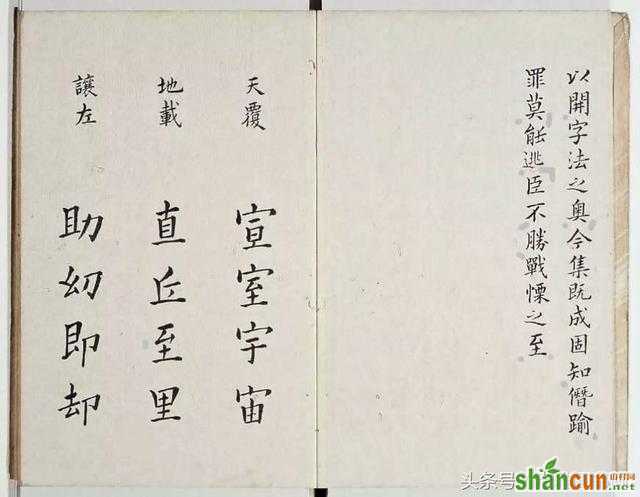 以開字法之奧今集既成固知僭踰
罪莫能逃臣不勝戰慄之至
天覆
宣室宇宙
地載
直丘至里
讓左
助幼即却
头条号
shancun
.net